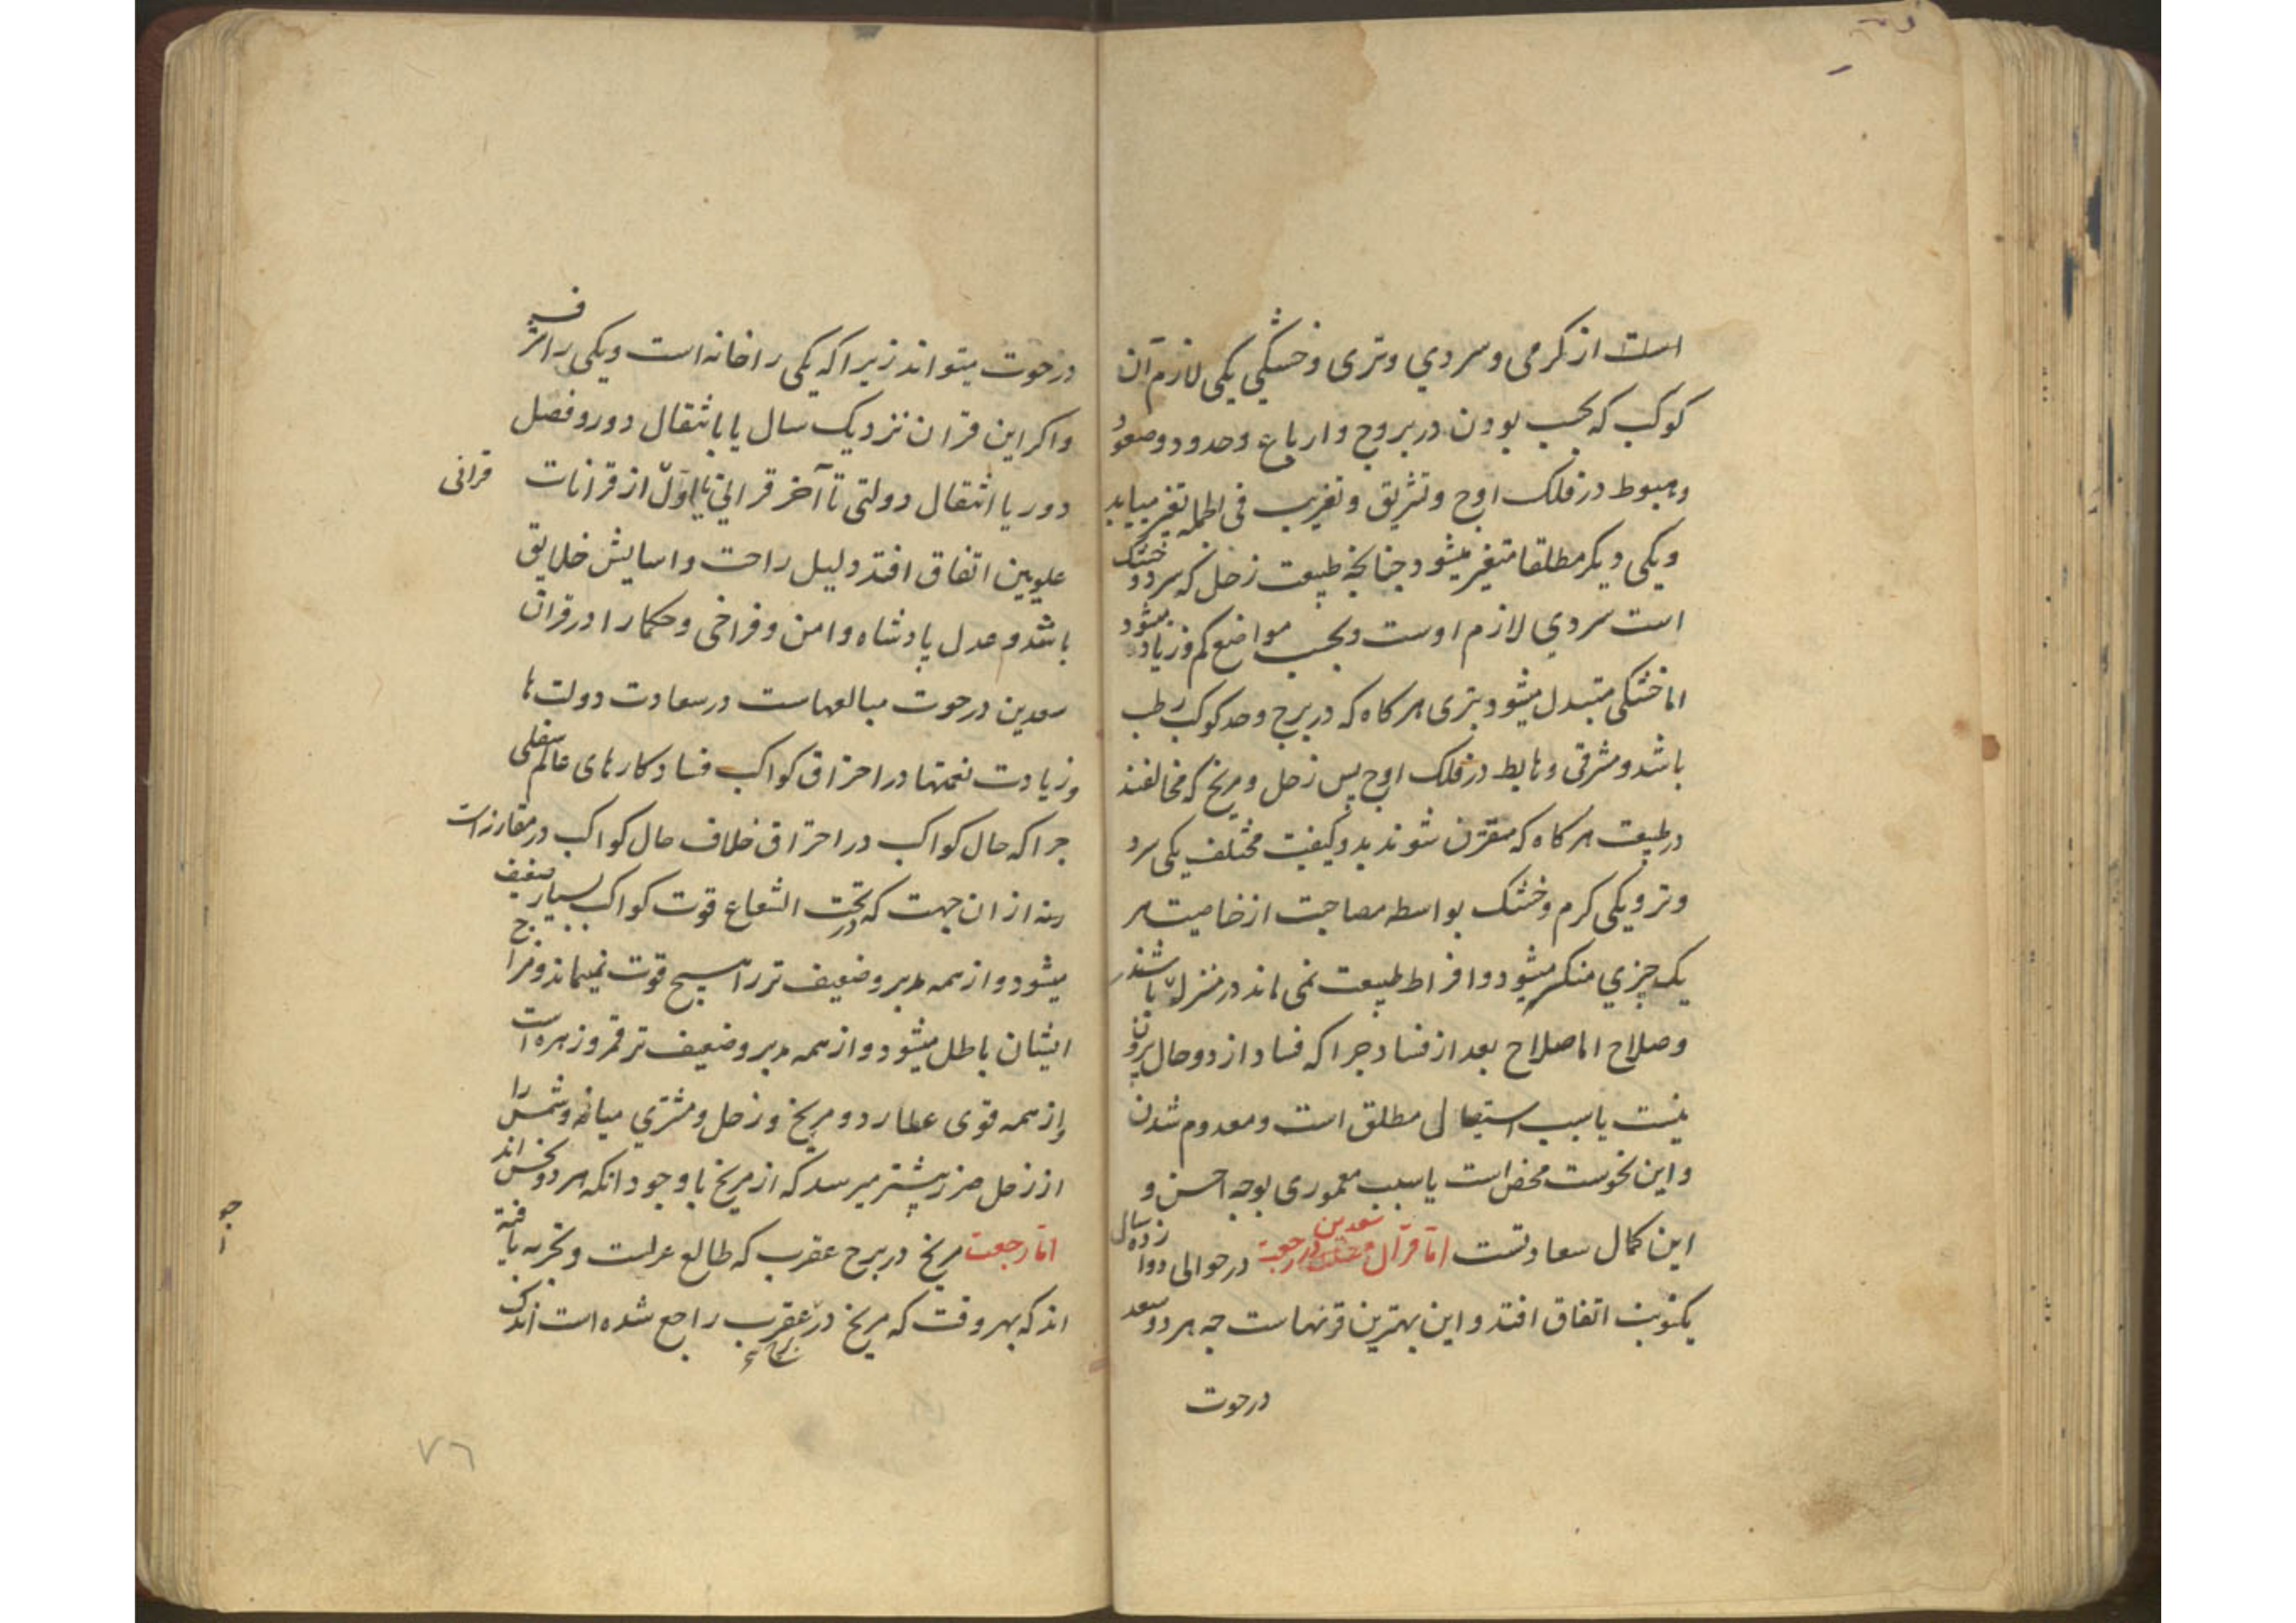 است از کرمی و سردی و تری و خشکی یکی لازم آن
کوکب که بحسب بودن در بروج و ارباع و حدود و صعود
و هبوط در فلک اوج و تشریق و تغریب فی الجمله تغیر مییابد
و یکی دیکر مطلقا متغیر میشود چنانچه طبیعت زحل که سرد و خشک
است سردی لازم اوست و بحسب مواضع کم و زیاد میشود
اما خشکی متبدل میشود بتری هر کاه که در برج و حد کوکب رطب
باشد و مشرقی و هابط در فلک اوج پس زحل و مریخ که مخالفند
در طبیعت هر کاه که مقترن شوند بدو کیفیت مختلف یکی سرد
و تر و یکی کرم و خشک بواسطه مصاحبت از خاصیت هر
یک چیزی منکسر میشود و افراط طبیعت نمی ماند در منزله باشند
و صلاح اما صلاح بعد از فساد چرا که فساد از دو حال بیرون
نیست یا سبب استیصال مطلق است و معدوم شدن
و این نحوست محض است یا سبب معموری بوجه احسن و
این کمال سعادتست اما قران سعدین در حوت در حوالی دوازده سال
یکنوبت اتفاق افتد و این بهترین قرنهاست چه هر دو سعد
در حوت
در حوت میتواند زیرا که یکی را خانه است و یکی را شرف
و اکر این قران نزدیک سال یا بانتقال دور و فصل
دور یا انتقال دولتی تا آخر قرانی یا اول از قرانات قرانی
علویین اتفاق افتد دلیل راحت و اسایش خلایق
باشد و عدل پادشاه و امن و فراخی و حکما را در قران
سعدین در حوت مبالغهاست در سعادت دولت ها
و زیادت نعمتها در احتراق کواکب فساد کارهای عالم سفلی
چرا که حال کواکب در احتراق خلاف حال کواکب در مقارنه است
از ان جهت که در تحت الشعاع قوت کواکب بسیار ضعیف
میشود و از همه مدبر و ضعیف تر را هیچ قوت نمیماند و مزاج
ایشان باطل میشود و از همه مدبر و ضعیف تر قمر و زهره است
و از همه قوی عطارد و مریخ و زحل و مشتری میانه و شمس را
از زحل ضرر بیشتر میرسد که از مریخ با وجود انکه هر دو نحس اند
اما رجعت مریخ در برج عقرب که طالع عرلست و تجربه یافته
اند که بهر وقت که مریخ در عقرب راجع شده است اندک
٧٦